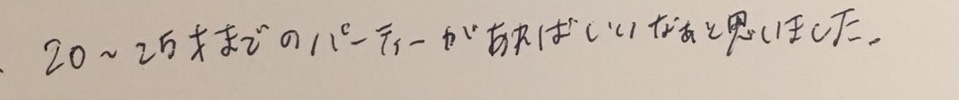 20～25才までのパーティーがあればいいなぁと思いました。